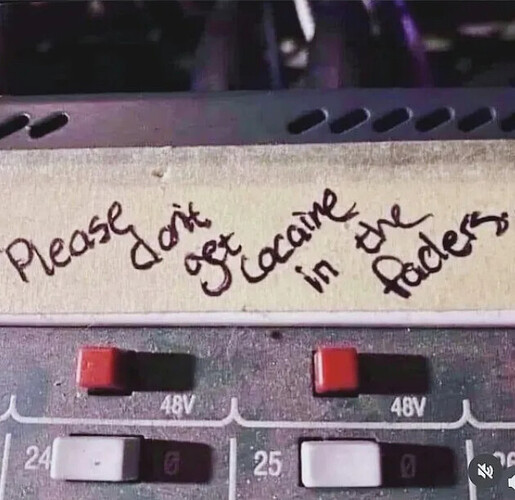 Please don't get cocaine in the faders.
48V 48V
24 Ø 25 Ø